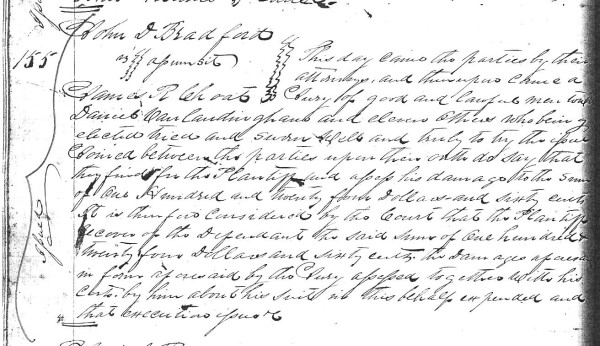 John D Bradford
155 vs assumpsit This day came the parties by their
attorneys, and thereupon came a
James R Choat Jury of good and lawful men towit
Daniel Caulaudinghaus and eleven others who being
elected tried and sworn well and truly to try the issue
Joined between the parties upon their oath do say that
they find for the Plantiff and assess his damage to the sum
of One Hundred and twenty four Dollars and sixty cents
It is therefore considered by the Court that the Plantiff
recover of the Defendant the said sum of One hundred &
twenty four Dollars and sixty cents the damages aforesaid
in form aforesaid by the Jury assessed together with his
costs by him about his suit in this behalf expended and
that execution issue